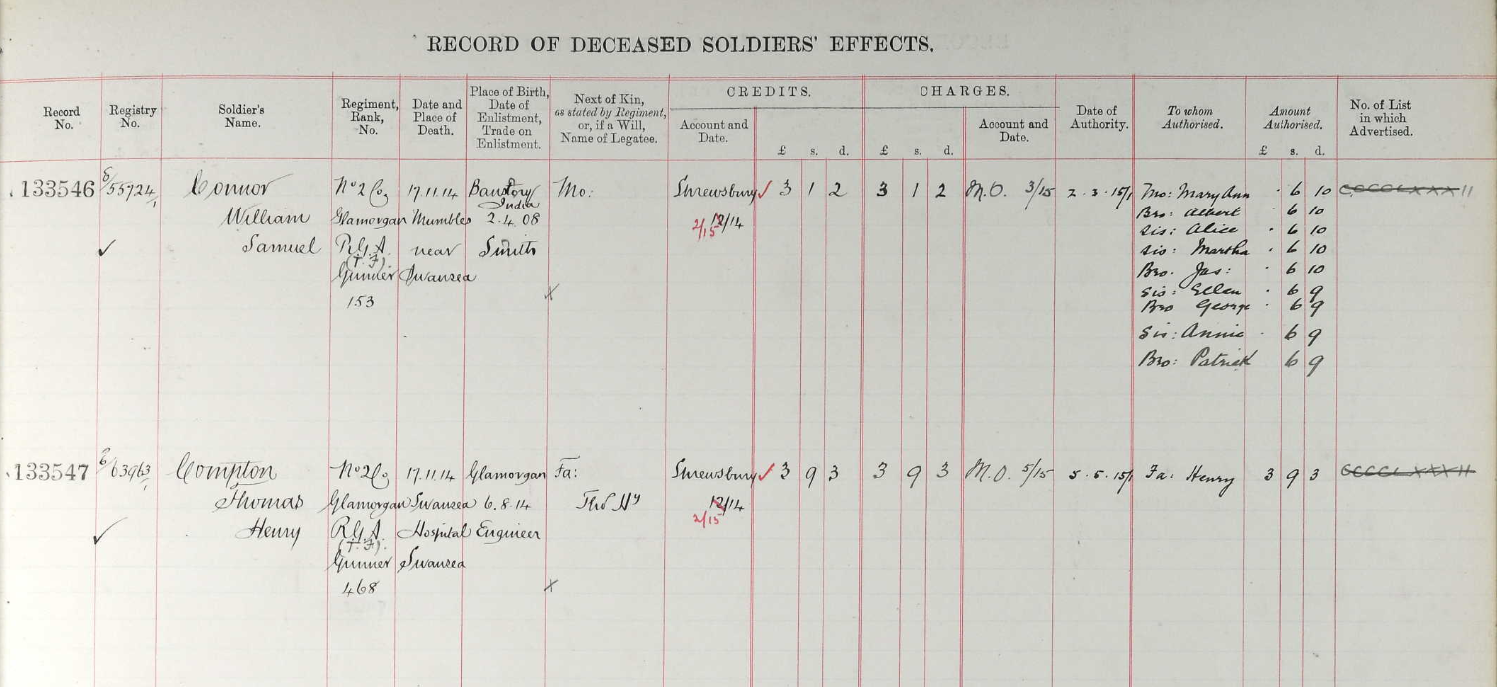 RECORD OF DECEASED SOLDIERS' EFFECTS.
Record No.
Registry No.
Soldier's Name.
Regiment, Rank, No.
Date and Place of Death.
Place of Birth, Date of Enlistment, Trade on Enlistment.
Next of Kin, as stated by Regiment, or, if a Will, Name of Legatee.
CREDITS.
Account and Date.
£ s. d.
CHARGES.
£ s. d.
Account and Date.
Date of Authority.
To whom Authorised.
Amount Authorised.
£ s. d.
No. of List in which Advertised.
133546 Connor No 2 Co, 17.11.14 Mo: Shrewsbury ✓ 3 1 2 3 1 2 M.O. 3/15 2.3.15 Mo: Mary Ann 6 10
India
William Glamorgan Mumbles 2.4.08 12/14 Bro: Albert 6 10
2/15 Sis: Alice 6 10
✓ Samuel R.G.A. near Smith Sis: Martha 6 10
(T.F.). Bro. Jas: 6 10
Gunner Swansea Sis: Ellen 6 9
153 x Bro George 6 9
Sis: Annie 6 9
Bro: Patrick 6 9
133547 Compton No 2 Co, 17.11.14 Glamorgan Fa: Shrewsbury ✓ 3 9 3 3 9 3 M.O. 5/15 5.5.15 Fa: Henry 3 9 3
Thomas Glamorgan Swansea 6.8.14 Thos Hy 12/14
2/15
✓ Henry R.G.A. Hospital Engineer
(T.F.).
Gunner Swansea
468 x